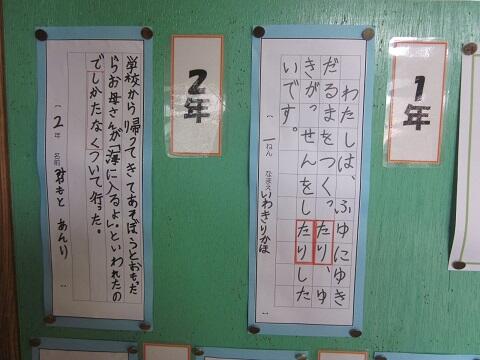 1年
わたしは、ふゆにゆき
だるまをつくったり、ゆ
きがっせんをしたりした
いです。
一ねん なまえ いわきりかほ
2年
学校から帰ってきてあそぼうとおもった
らお母さんが「海に入るよ。」といわれたの
でしかたなくついて行った。
2年 名前 あんり